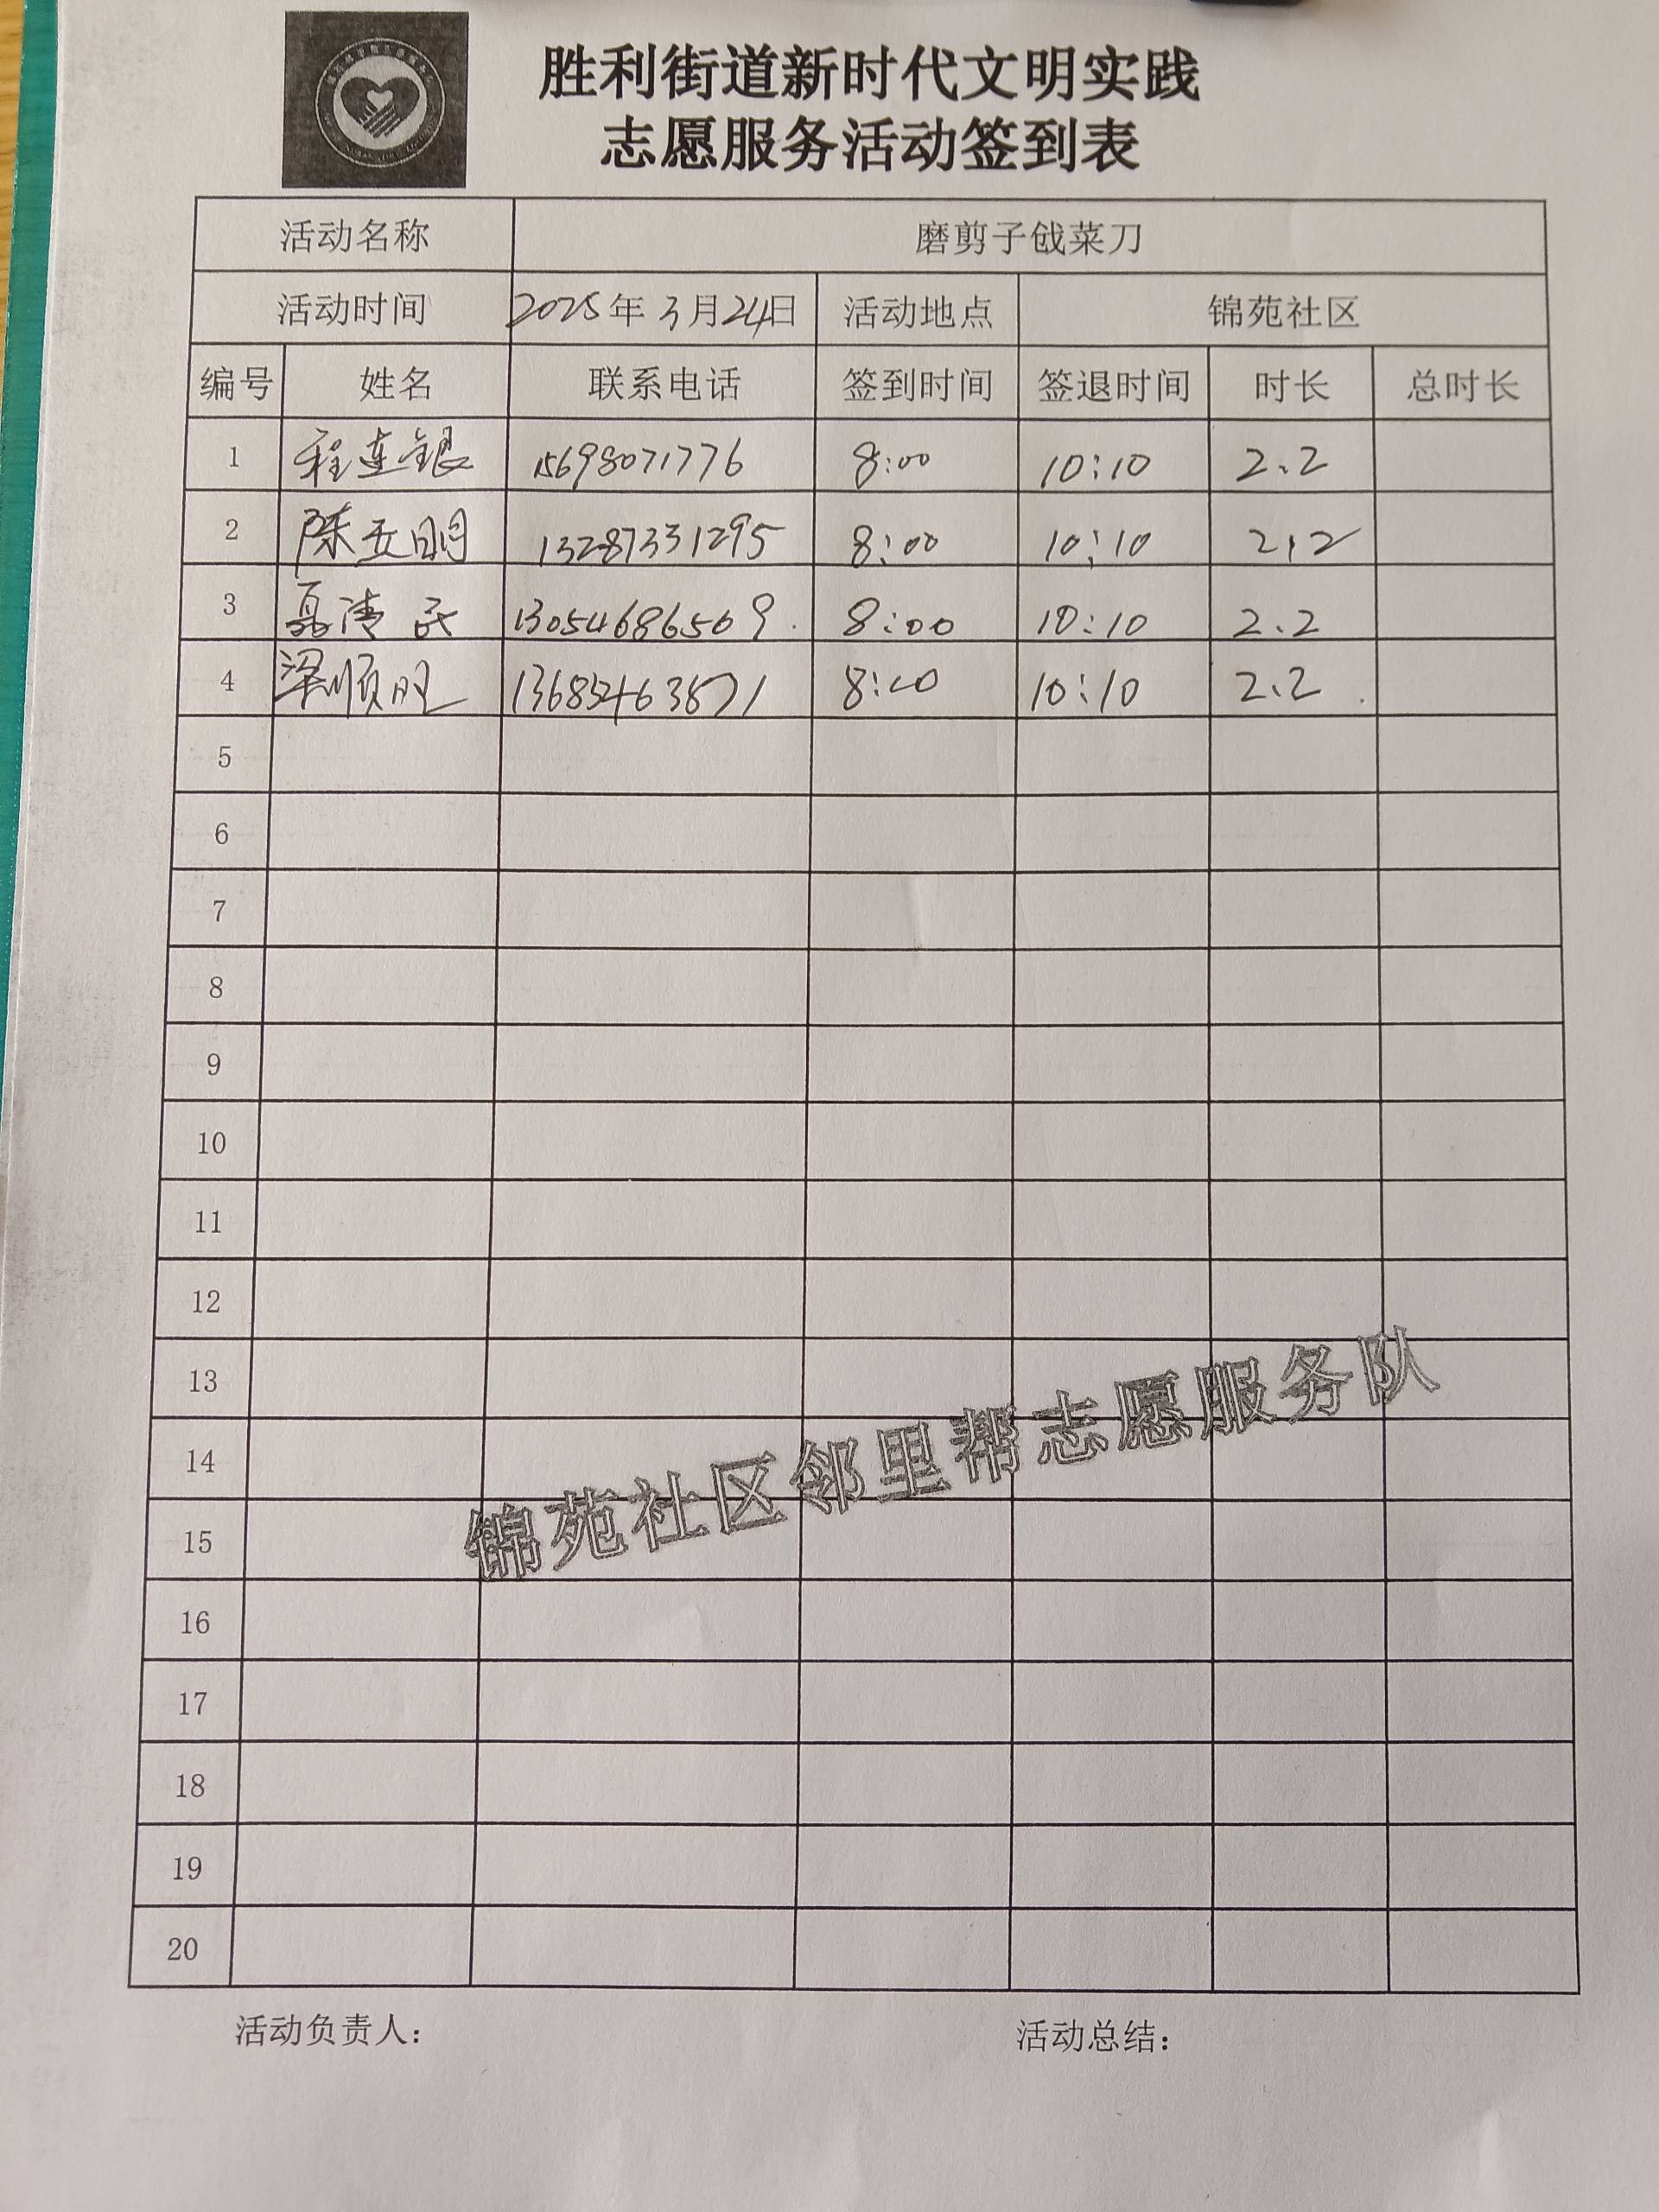 胜利街道新时代文明实践
志愿服务活动签到表
活动名称 磨剪子戗菜刀
活动时间 2025年3月24日 活动地点 锦苑社区
编号 姓名 联系电话 签到时间 签退时间 时长 总时长
1 程连银 15698071776 8:00 10:10 2.2
2 陈玉明 13287331295 8:00 10:10 2.2
3 聂清民 13054686569 8:00 10:10 2.2
4 梁顺旺 8:00 10:10 2.2
5
6
7
8
9
10
11
12
13
14
15
16
17
18
19
20
锦苑社区邻里帮志愿服务队
活动负责人： 活动总结：